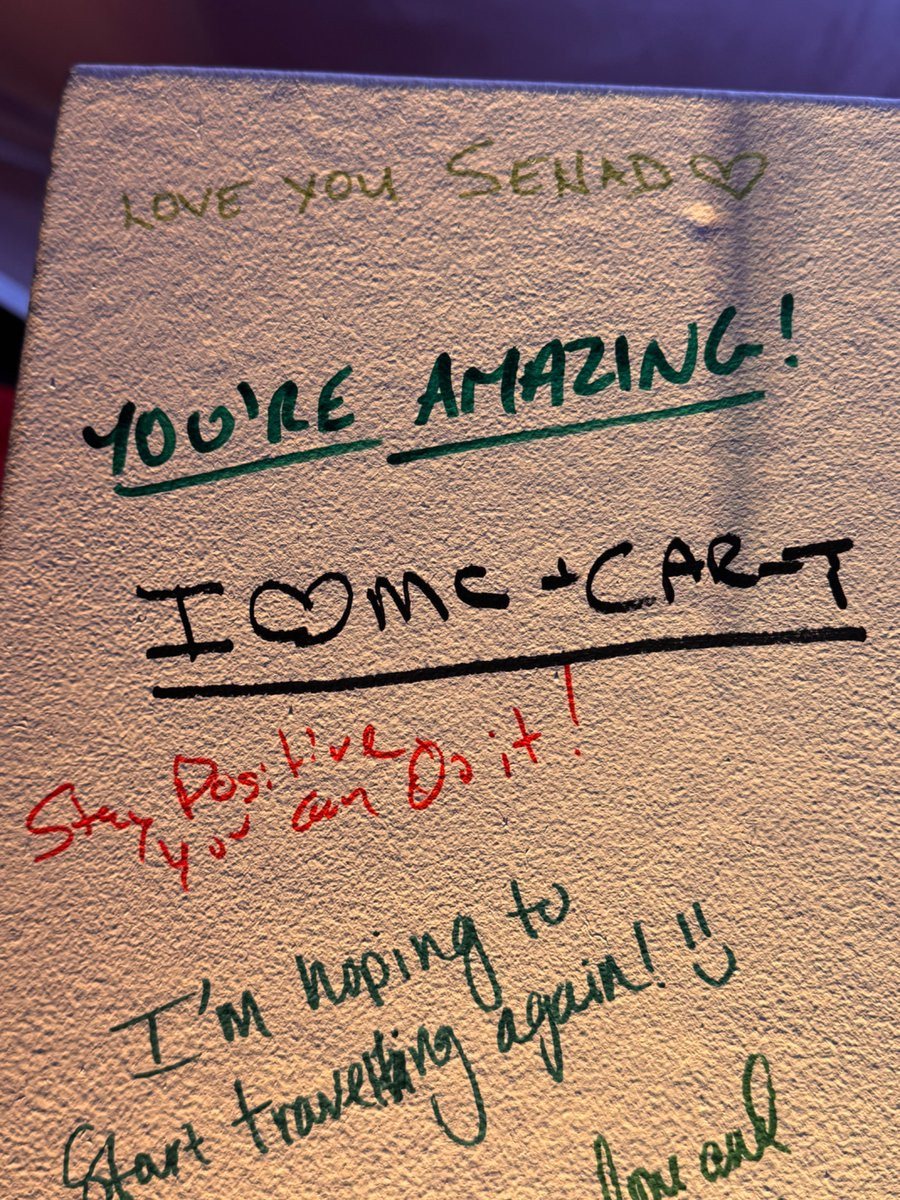 LOVE YOU SENAD♡
YOU'RE AMAZING!
I ♡ MC + CAR-T
Stay Positive
you can Do it!
I'm hoping to
start travelling again! :)
and